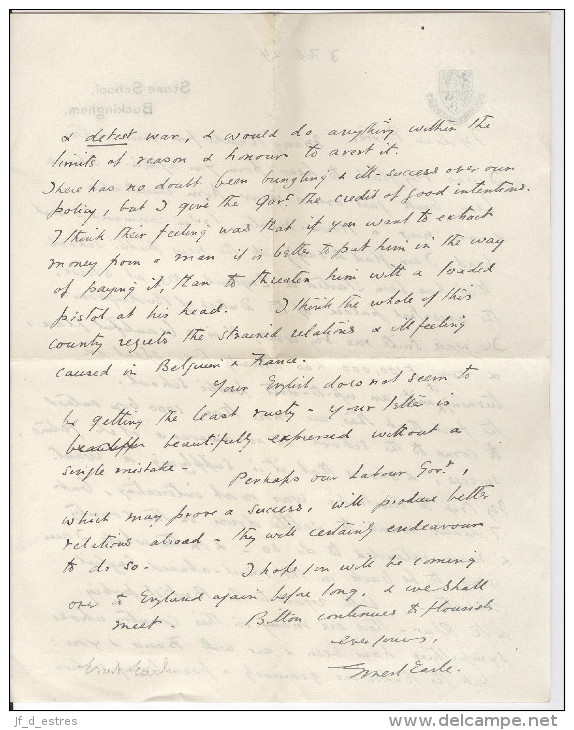 Stowe School,
Buckingham.
& detest war, & would do anything within the
limits of reason & honour to avert it.
There has no doubt been bungling & ill-success over our
policy, but I give the Govt. the credit of good intentions.
I think their feeling was that if you want to extract
money from a man it is better to put him in the way
of paying it, than to threaten him with a loaded
pistol at his head. I think the whole of this
country regrets the strained relations & ill feeling
caused in Belgium & France.
Your English does not seem to
be getting the least rusty - your letter is
beautifully expressed without a
single mistake - Perhaps our Labour Govt.,
which may prove a success, will produce better
relations abroad - they will certainly endeavour
to do so - I hope you will be coming
over to England again before long, & we shall
meet. Bilton continues to flourish
ever yours,
Ernest Earle.
Ernest Earle
jf_d_estres
www.delcampe.net